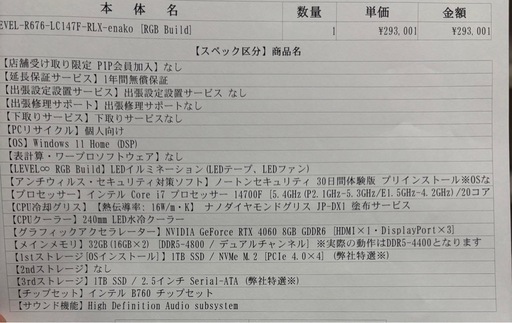 本 体 名 数量 単価 金額
EVEL-R676-LC147F-RLX-enako [RGB Build] 1 ¥293,001 ¥293,001
【スペック区分】商品名
【店舗受け取り限定 PIP会員加入】なし
【延長保証サービス】1年間無償保証
【出張設定設置サービス】出張設定設置サービス なし
【出張修理サポート】出張修理サポートなし
【下取りサービス】下取りサービスなし
【PCリサイクル】個人向け
【OS】Windows 11 Home (DSP)
【表計算・ワープロソフトウェア】なし
【LEVEL∞ RGB Build】LEDイルミネーション(LEDテープ、LEDファン)
【アンチウィルス・セキュリティ対策ソフト】ノートンセキュリティ 30日間体験版 プリインストール※OSな
【プロセッサー】インテル Core i7 プロセッサー 14700F [5.4GHz(P2.1GHz-5.3GHz/E1.5GHz-4.2GHz)/20コア
【CPU冷却グリス】【熱伝導率: 16W/m・K】 ナノダイヤモンドグリス JP-DX1 塗布サービス
【CPUクーラー】240mm LED水冷クーラー
【グラフィックアクセラレーター】NVIDIA GeForce RTX 4060 8GB GDDR6 [HDMI×1・DisplayPort×3]
【メインメモリ】32GB(16GB×2) [DDR5-4800 / デュアルチャンネル] ※実際の動作はDDR5-4400となります
【1stストレージ[OSインストール]】1TB SSD / NVMe M.2 [PCIe 4.0×4] (弊社特選※)
【2ndストレージ】なし
【3rdストレージ】1TB SSD / 2.5インチ Serial-ATA (弊社特選※)
【チップセット】インテル B760 チップセット
【サウンド機能】High Definition Audio subsystem